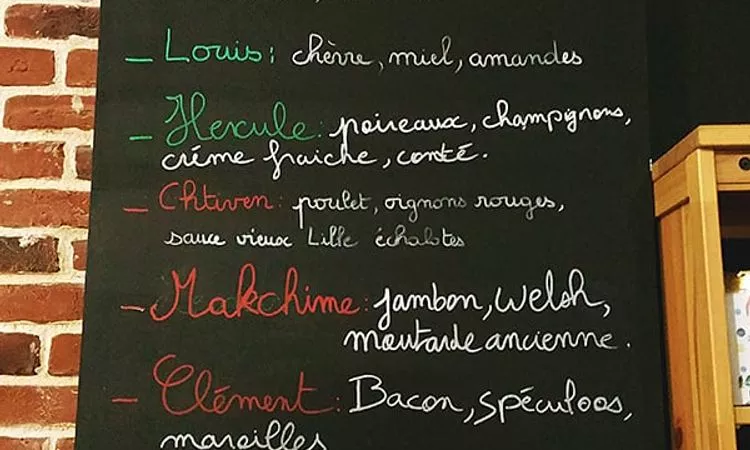 - Louis: chèvre, miel, amandes
- Hercule: poireaux, champignons,
crème fraiche, comté.
- Chtiven: poulet, oignons rouges,
sauce vieux Lille échalotes
- Makchime: jambon, welsh,
moutarde ancienne.
- Clément: Bacon, spéculoos,
maroilles